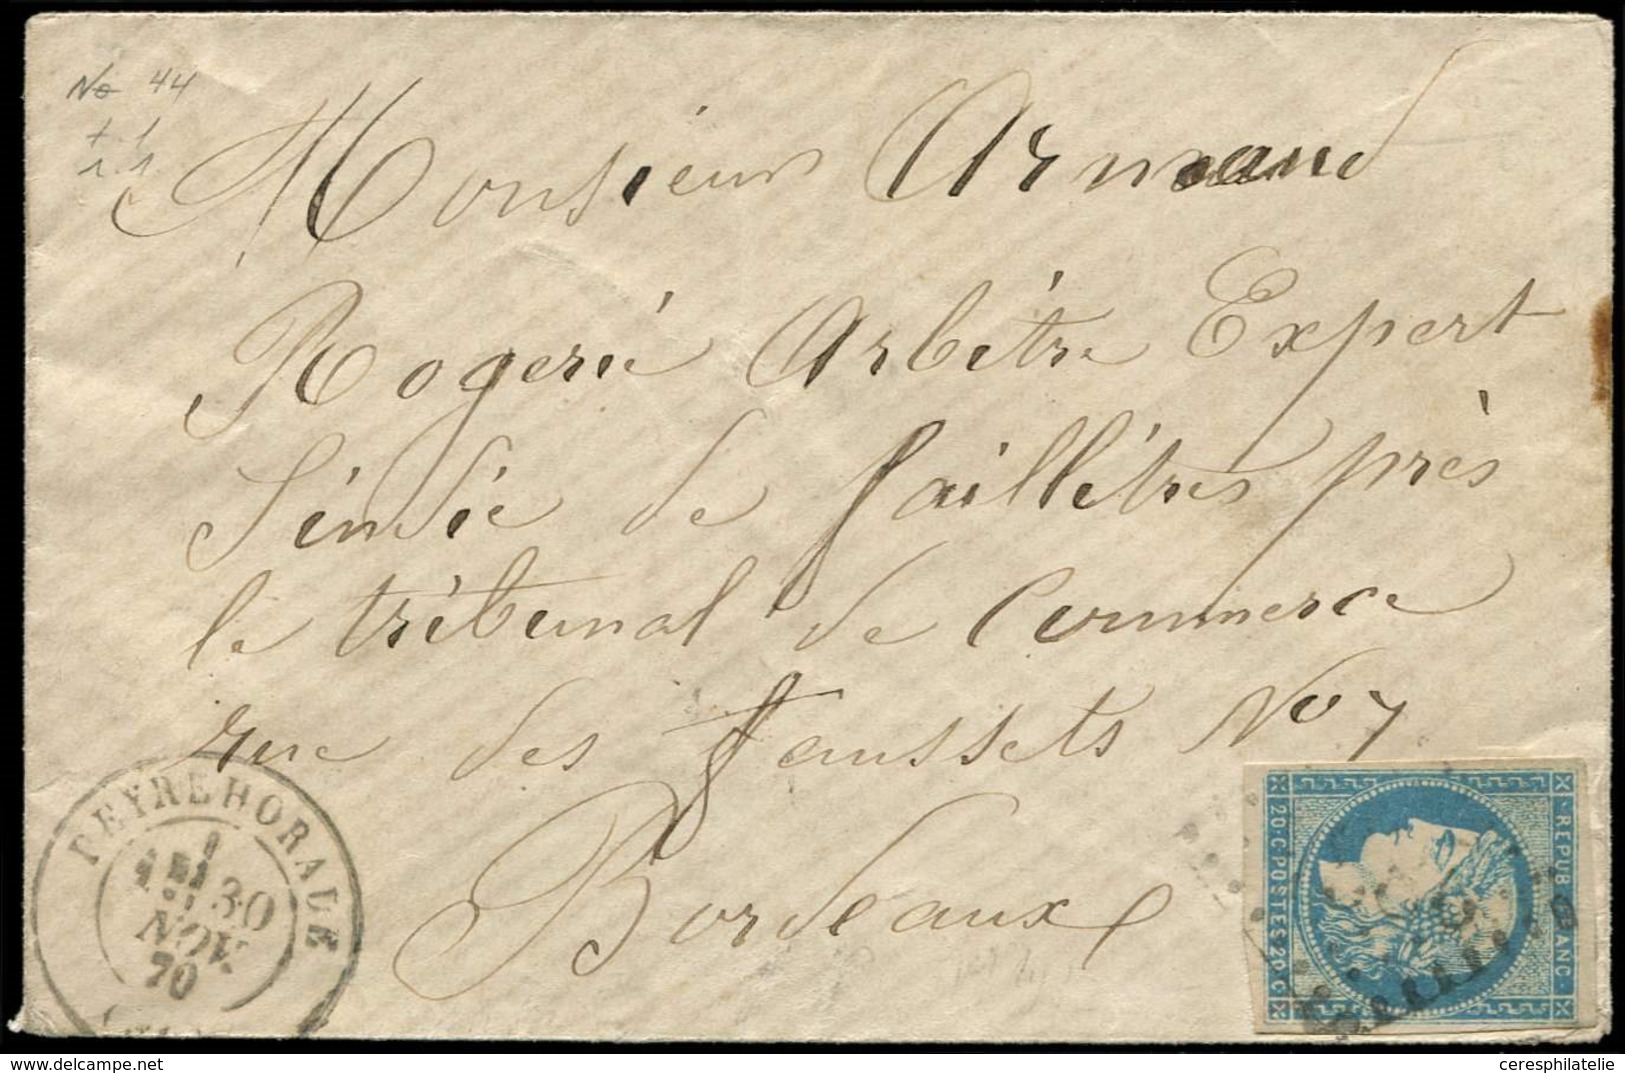 No 44
Monsieur Armand
Rogerié Arbètre Expert
Sindie de faillétres près
le tribunal de Commerce
rue des faussets No 7
Bordeaux
PEYREHORADE
30
NOV.
70
REPUB FRANC
20 C POSTES 20 C
delcampe.net
ceresphilatelie